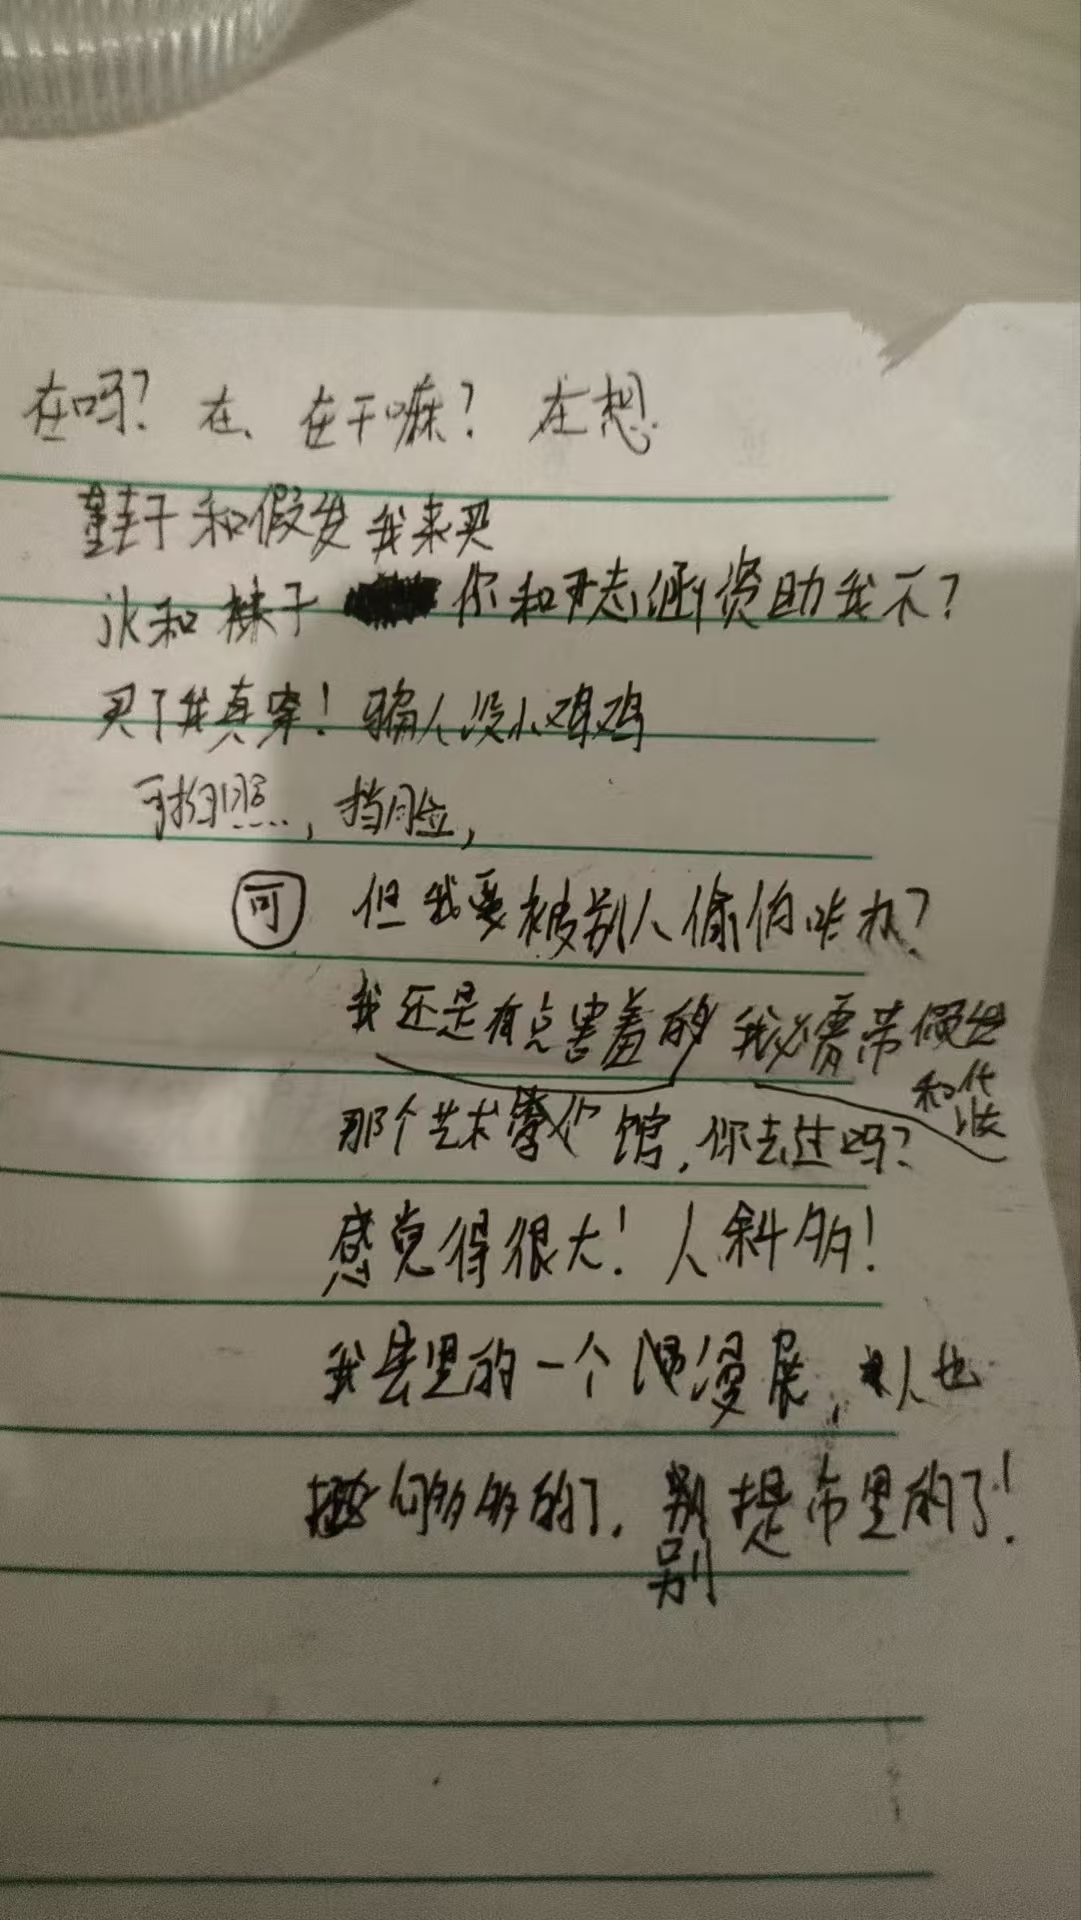 在吗？在、在干嘛？在想
鞋子和假发我来买
jk和袜子 你和开志涵资助我不？
买了我真穿！骗人没小鸡鸡
可拍照，挡脸，
可 但我要被别人偷拍咋办？
我还是有点害羞的 我必需带假发
和化妆
那个艺术 馆，你去过吗？
感觉得很大！人斜多！
我县里的一个漫展，人也
够多多的了。别提市里的了！
别